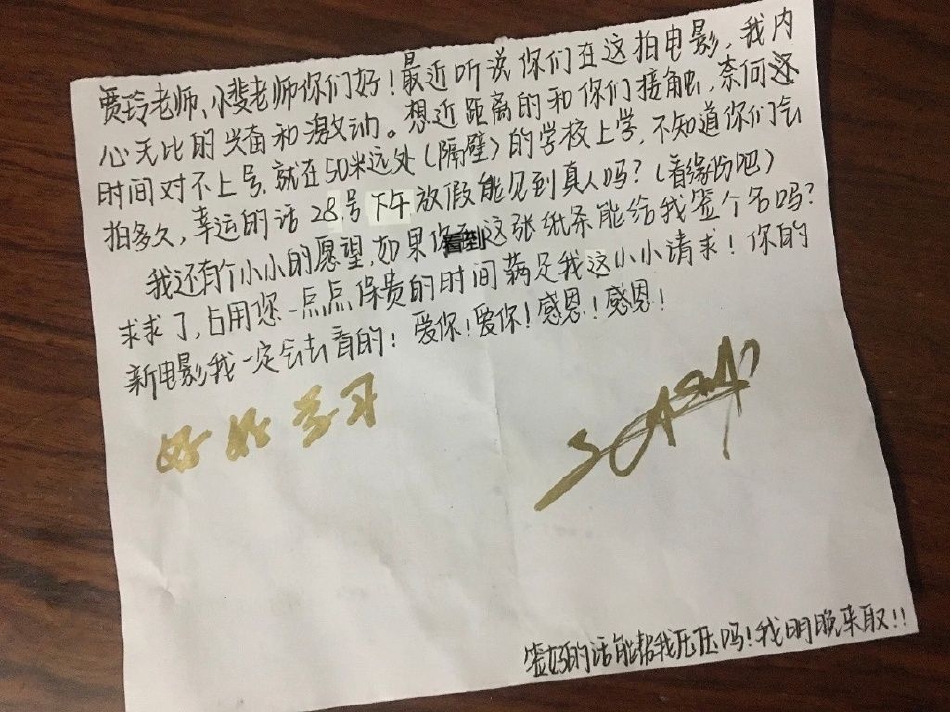 贾玲老师、小斐老师你们好！最近听说你们在这拍电影，我内
心无比的兴奋和激动。想近距离的和你们接触，奈何还
时间对不上号，就在50米远处（隔壁）的学校上学，不知道你们会
拍多久，幸运的话28号下午放假能见到真人吗？（看缘份吧）
我还有个小小的愿望，如果你看到这张纸条能给我签个名吗？
求求了，占用您一点点保贵的时间满足我这小小请求！你的
新电影我一定会去看的！爱你！爱你！感恩！感恩！
好好学习
签好的话能帮我压压吗！我明晚来取！！